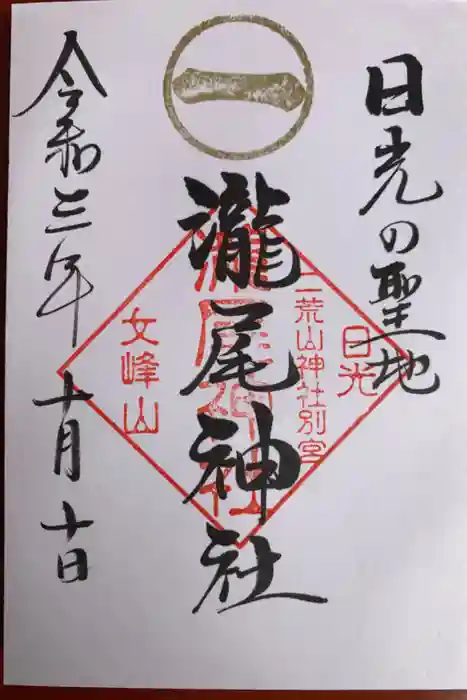 日光の聖地
一
瀧尾神社
日光
二荒山神社別宮
瀧尾神社
女峰山
令和三年十月十日